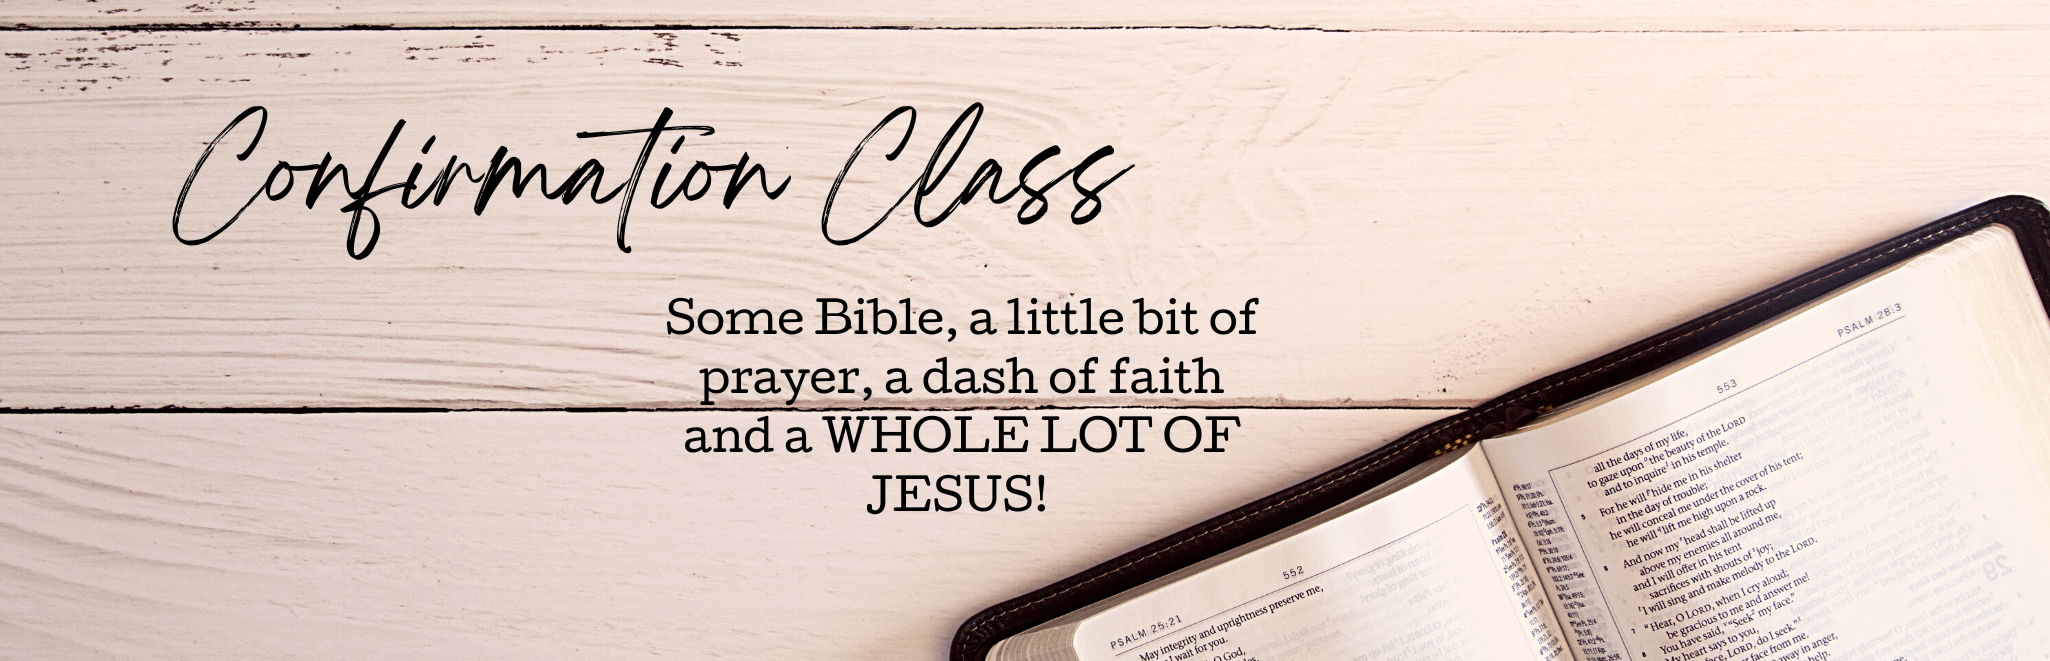 Confirmation Class
Some Bible, a little bit of
prayer, a dash of faith
and a WHOLE LOT OF
JESUS!
PSALM 25:21
552
May integrity and uprightness preserve me,
I wait for you.
O God,
553
PSALM 28:3
all the days of my life,
to gaze upon the beauty of the LORD
and to inquire in his temple.
For he will hide me in his shelter
in the day of trouble;
he will conceal me under the cover of his tent;
he will lift me high upon a rock.
And now my head shall be lifted up
above my enemies all around me,
and I will offer in his tent
sacrifices with shouts of joy;
I will sing and make melody to the LORD.
Hear, O LORD, when I cry aloud;
be gracious to me and answer me!
You have said, "Seek my face."
My heart says to you,
face, LORD, do I seek."
face from me.
away in anger,
help.